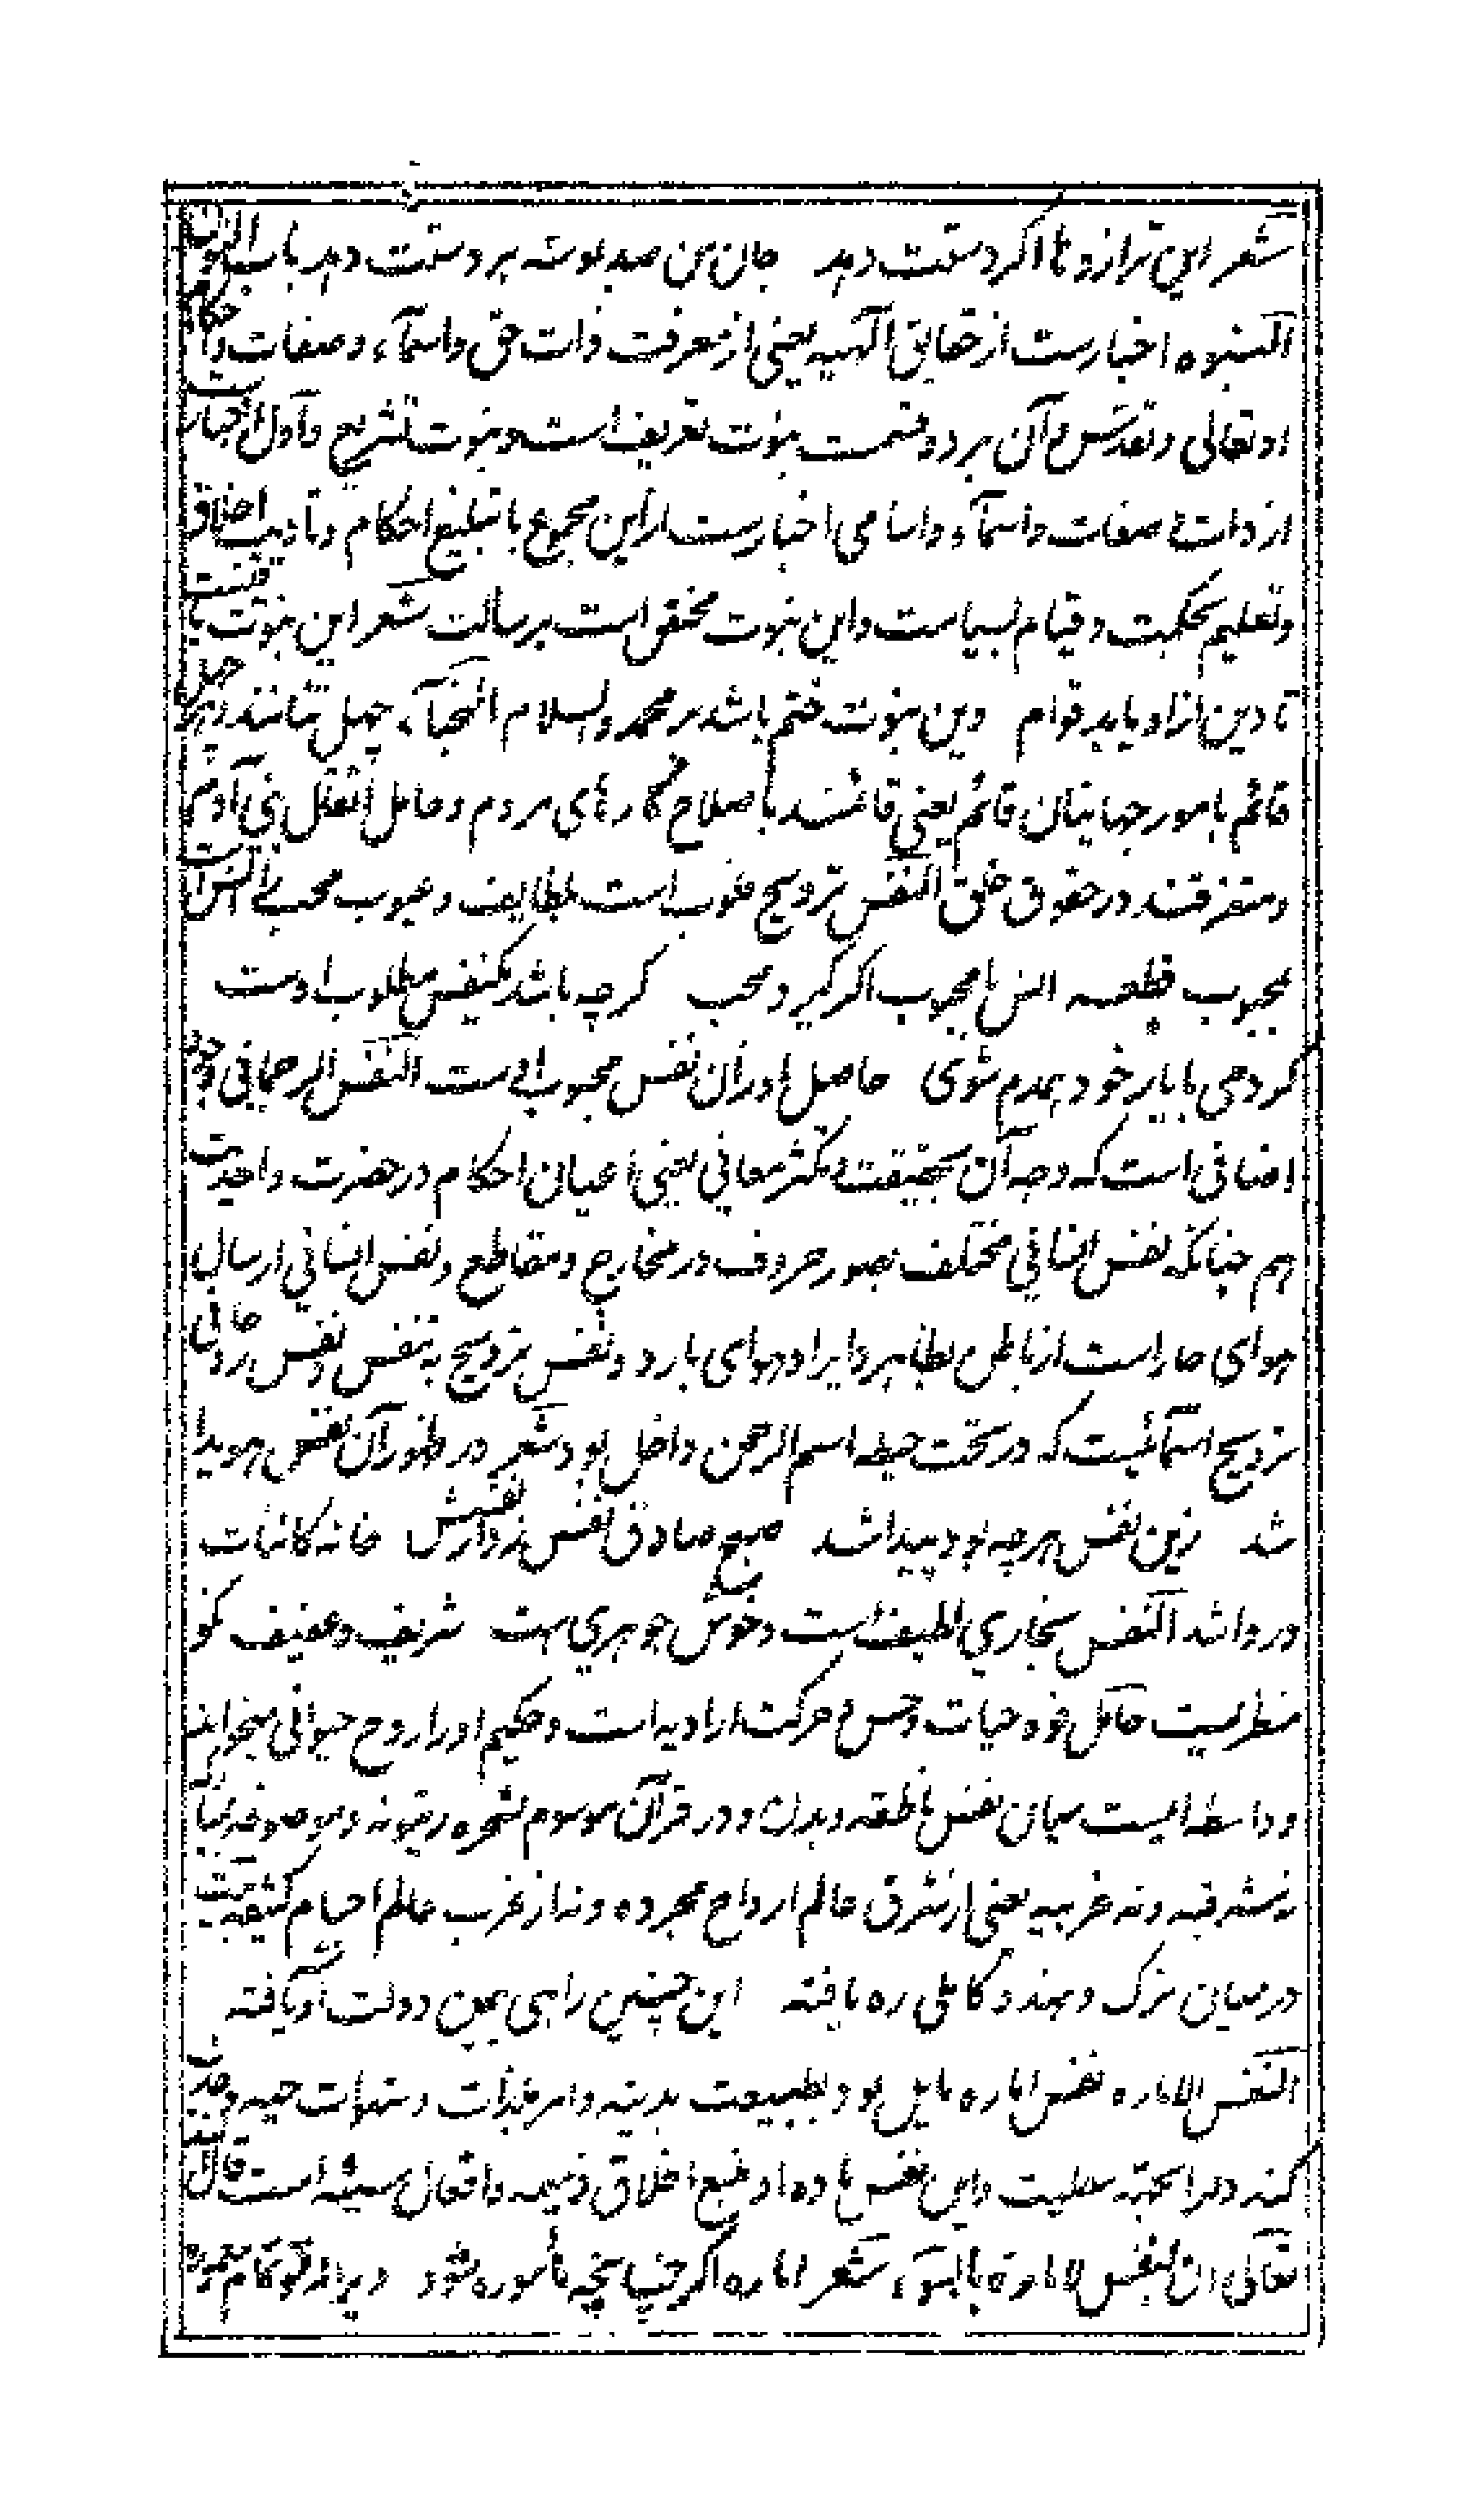 شعر این ترازو تا اکر دستت دهد جان من صد بوسه بر دستت دهد باب النون
النبوه اخبارست از حقایق الهیه یعنی از معرفت ذات حق واسمآء وصفات واحکام
او تعالی وتقدس وآن بر دو قسمت نبوت تعریف است ونبوت تشریع واول اخبارست
از ذات وصفات واسمآء واسامی اخبارست از این مجموع با تبلیغ احکام وتادیب اخلاق
وتعلیم بحکمت وقیام بسیاست واین نبوت مختص است برسالت شعر این نبوت
تا دین از او یابد قوام وین نبوت ختم باشد بر محمد والسلام النجبآء چهل تنانند
قائم بامور جهانیان قائم یعنی قائمند باصلاح کارهای مردم وحامل اثقال بنی آدم
ومتفرقند در حقوق خلق النفس ترویح قلوب است بلطایف وعیوب محب را انس است
بمحبوب قطعه انس با محبوب اکر کیرد محب کرچه باشد یکنفس مطلوب اوست
کر دمی با یار خود همدم شوی حاصل او زان نفس محبوب اوست النفس الرحمانی وجود
اضافی است که وجه آن بحقیقت وتکثر معانی یعنی اعیان احکام در حضرت واحدیت
هم چنانکه نفس انسانی مختلف بصور حروف در مخارج ومقاطع ونفس انسانی ارسال
هوای حار است از باطن بظاهر وایراد هوای بارد ونفس ترویح به تنفس ونفس رحمانی
ترویح اسمائیست که در تحت حیطه اسم الرحمن داخل بود شعر در ظهور آن نفس هویدا
شد زین نفس هرچه بود پیدا شد صبح صادق نفس زد از نفسش خانه کائنات
در وا شد النفس بخاری لطیف است وخوش جوهری است شریف وعفیف نکو
منظریست حامل قوه حیات وحس وحرکت ارادیه است وحکیم او را روح حیوانی میخواند
وواسطه ایست میان نفس ناطقه وبدن ودر قرآن موسوم بشجره زیتونه وموصوفه
نه شرقیه ونه غربیه یعنی از شرق عالم ارواح مجرده ونه از غرب عالم اجسام کثیفه بیت
در میان ترک وهندو کاملی ره یافته این چنین راهی بیمن دولت او یافته
النفس الاماره نفس اماره مایل بود بطبیعت بدنیه وامر بلذات وشهوات حسیه وجذب
کند دل را بجهته سفلیت واین نفس ماده او منبع اخلاق ذمیمه وافعال سیئه است قال الله
تعالی ان النفس لامارة بالسوء شعر اماره اکر چنانچه مأموره شود ویرانه تو تمام معموره